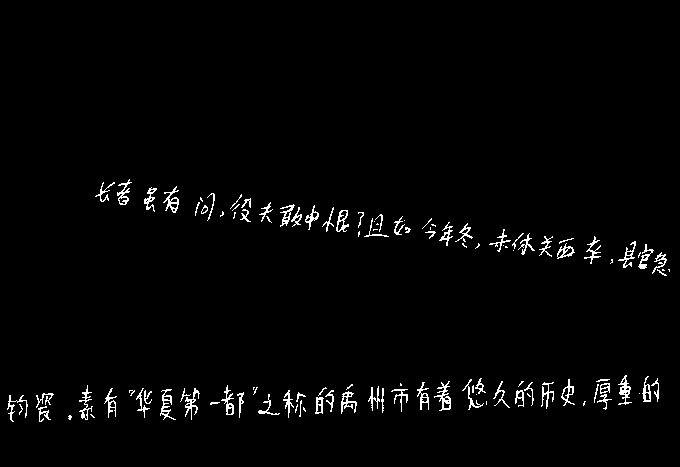 长者虽有问,役夫敢申恨?且如今年冬,未休关西卒,县官急
钧瓷.素有"华夏第一都"之称的禹州市有着悠久的历史,厚重的